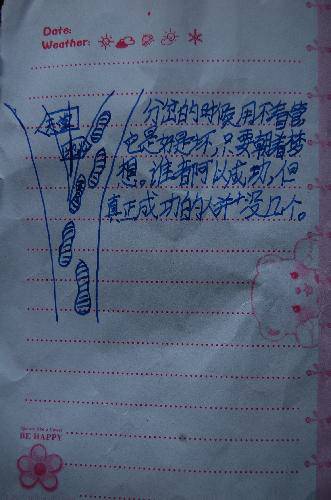 Date:
Weather:
天堂
分岔的时候,用不着管
也是好是坏,只要朝着梦
想。谁者可以成功,但
真正成功的的人并十没几个。
BE HAPPY